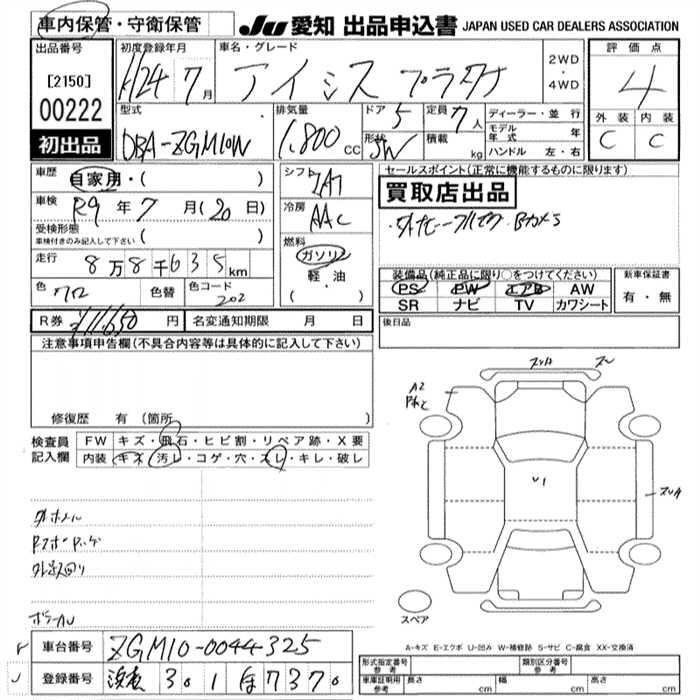 車内保管・守衛保管
JU 愛知 出品申込書 JAPAN USED CAR DEALERS ASSOCIATION
出品番号
[2150]
00222
初出品
初度登録年月
H24 7月
車名・グレード
アイシス プラタナ
2WD
・
4WD
評価点
4
外装 内装
C C
型式
DBA-ZGM10W
排気量
1,800 CC
ドア 5
形状 SW
定員 7人
積載 kg
ディーラー・並行
モデル年式 年
ハンドル 左・右
車歴
自家用・( )
車検
R9年7月(20日)
受検形態
車検付きのみ記入して下さい ( )
走行
8万8千635km
色
色替
色コード
202
シフト
IAT
冷房
AAC
燃料
ガソリン
軽・油
( ・ )
セールスポイント(正常に機能するものに限ります)
買取店出品
装備品(純正品に限り○をつけてください)
PS PW エアB AW
SR ナビ TV カワシート
新車保証書
有・無
R券 ¥11,650 円
名変通知期限 月 日
後日品
注意事項申告欄(不具合内容等は具体的に記入して下さい)
修復歴 有(箇所 )
検査員記入欄
FW キズ・飛石・ヒビ割・リペア跡・X要
内装 キズ・汚レ・コゲ・穴・スレ・キレ・破レ
スリA
A2
U1
スリA
スペア
A-キズ E-エクボ U-凹み W-補修跡 S-サビ C-腐食 XX-交換済
車台番号 ZGM10-0044325
登録番号
形式指定番号 参考
類別区分番号 参考
車庫証明用 参考
長さ cm 幅 cm 高さ cm